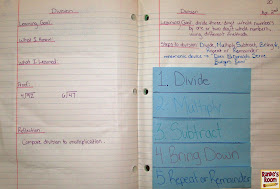 Division
Learning Goal:
What I Know:
What I Learned:
Proof:
4)92 6)47
Reflection:
Compare division to multiplication.
Division
Learning Goal: divide three digit whole numbers
by one or two digit whole numbers,
using different methods.
Steps to division: Divide, Multiply, Subtract, Bring ↓,
Repeat or Remainder
mnemonic device → Does
Burgers Raw
1. Divide
2. Multiply
3. Subtract
4. Bring Down
5. Repeat or Remainder
Runde's
Room